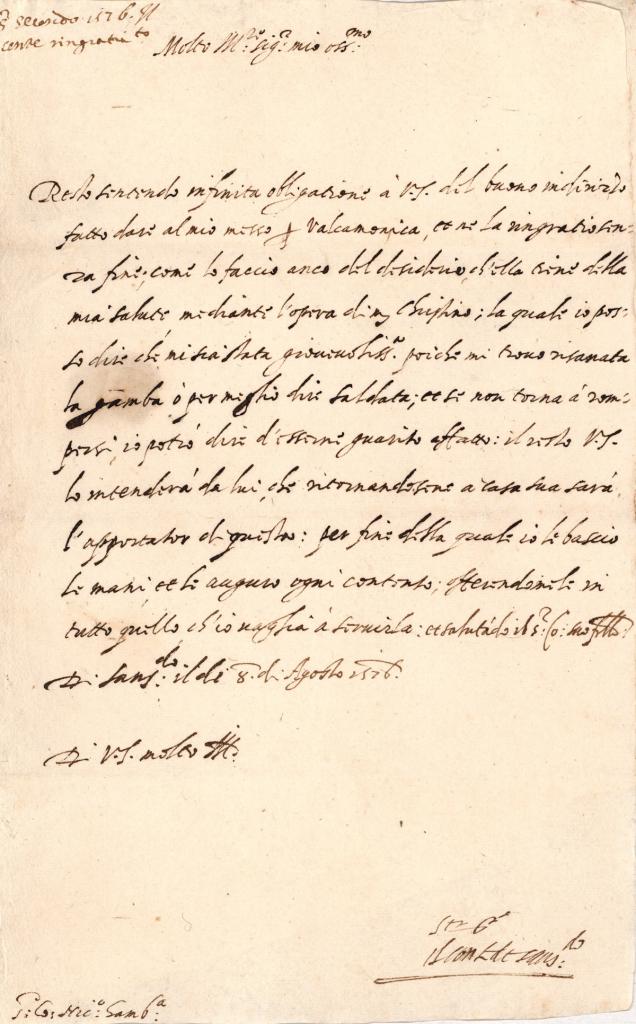 secondo 1576. Il
conte ringratia.to
Molto M.co Sig.r mio oss.mo
Resto sentendo infinita obligatione à V.S. del buono indirizzo
fatto dare al mio messo Valcamonica, et ne la ringratio sen-
za fine; come lo faccio anco del desiderio, ch'ella tiene della
mia salute mediante l'opera di; la quale io pos-
so dire che mi sia stata giovevoliss.a poiche mi trovo risanata
la gamba ò per meglio dire saldata; et se non torna à rom-
persi, io potrò dire d'esserne guarito affatto: il resto V.S.
lo intenderà da lui, che ritornandosene a casa sua sarà
l'apportator di questa: per fine della quale io le bascio
le mani, et le auguro ogni contento; offerendomele in
tutto quello ch'io vaglia à servirla: et salutãdo il S.r Co: suo
Di Sans.do il dì 8. di Agosto 1576.
Di V.S. molto Ill.
Ser.
il Conte di Sans.do
S.r Co: Nic.o Gamb.a